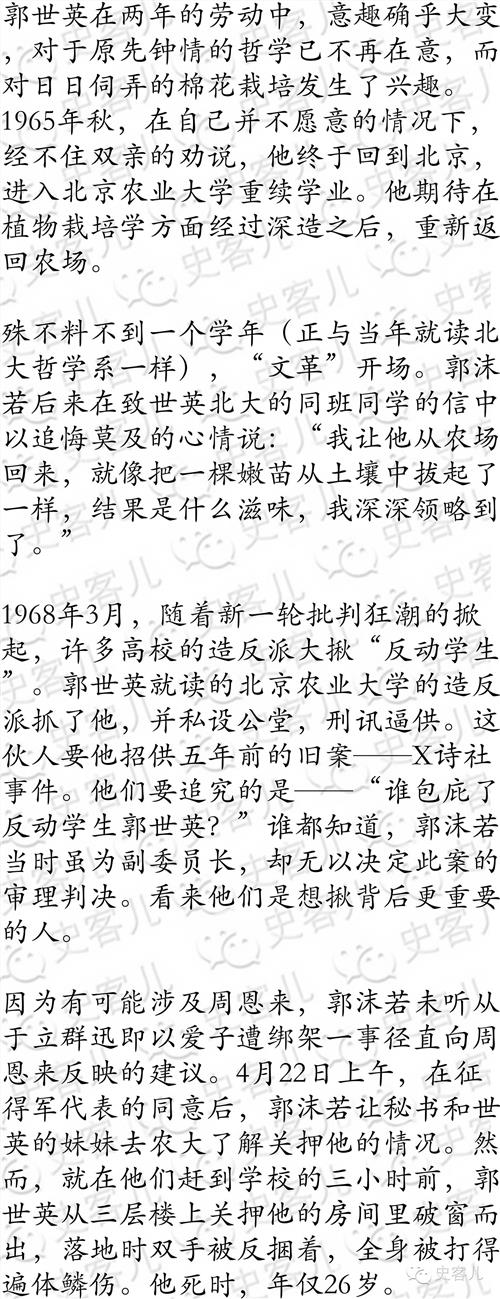 郭世英在两年的劳动中，意趣确乎大变
，对于原先钟情的哲学已不再在意，而
对日日伺弄的棉花栽培发生了兴趣。
1965年秋，在自己并不愿意的情况下，
经不住双亲的劝说，他终于回到北京，
进入北京农业大学重续学业。他期待在
植物栽培学方面经过深造之后，重新返
回农场。
殊不料不到一个学年（正与当年就读北
大哲学系一样），“文革”开场。郭沫
若后来在致世英北大的同班同学的信中
以追悔莫及的心情说：“我让他从农场
回来，就像把一棵嫩苗从土壤中拔起了
一样，结果是什么滋味，我深深领略到
了。”
1968年3月，随着新一轮批判狂潮的掀
起，许多高校的造反派大揪“反动学生
”。郭世英就读的北京农业大学的造反
派抓了他，并私设公堂，刑讯逼供。这
伙人要他招供五年前的旧案——X诗社
事件。他们要追究的是——“谁包庇了
反动学生郭世英？”谁都知道，郭沫若
当时虽为副委员长，却无以决定此案的
审理判决。看来他们是想揪背后更重要
的人。
因为有可能涉及周恩来，郭沫若未听从
于立群迅即以爱子遭绑架一事径直向周
恩来反映的建议。4月22日上午，在征
得军代表的同意后，郭沫若让秘书和世
英的妹妹去农大了解关押他的情况。然
而，就在他们赶到学校的三小时前，郭
世英从三层楼上关押他的房间里破窗而
出，落地时双手被反捆着，全身被打得
遍体鳞伤。他死时，年仅26岁。
史客儿